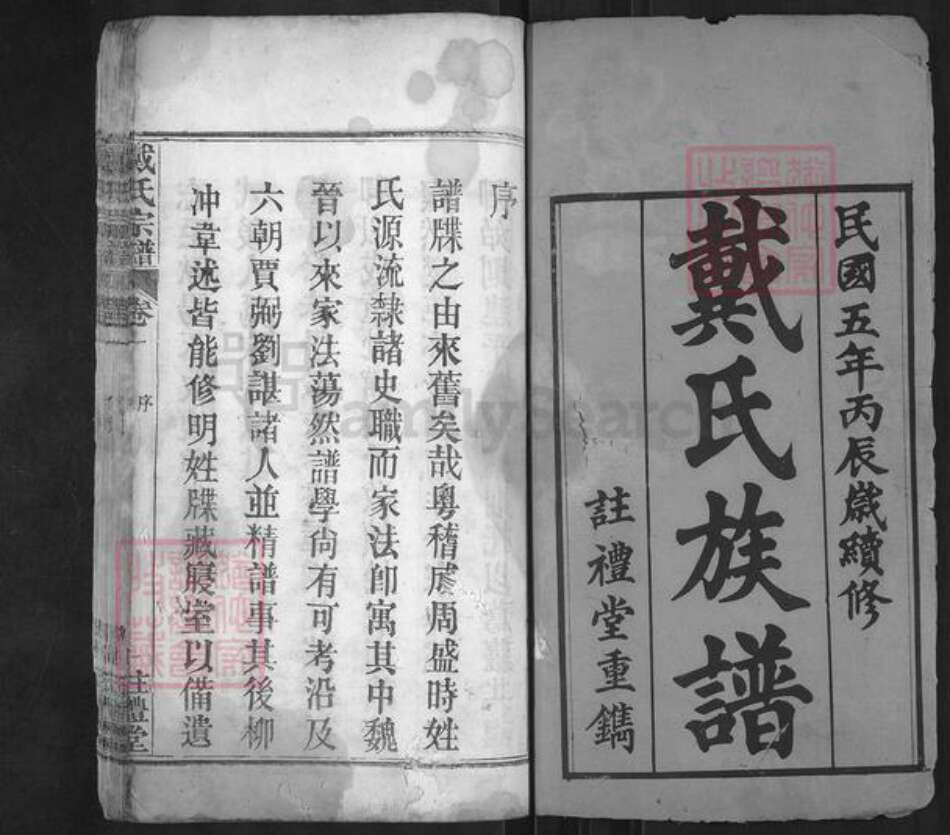 民國五年丙辰歲續修
戴氏族譜
註禮堂重鐫
序
譜牒之由來舊矣哉粵稽成周盛時姓
氏源流隸諸史職而家法卽寓其中魏
晉以來家法蕩然譜學尙有可考沿及
六朝賈弼劉諶諸人並精譜事其後柳
冲韋述皆能修明姓牒藏寢室以備遺
戴氏宗譜
卷一
序
註禮堂
FamilySearch